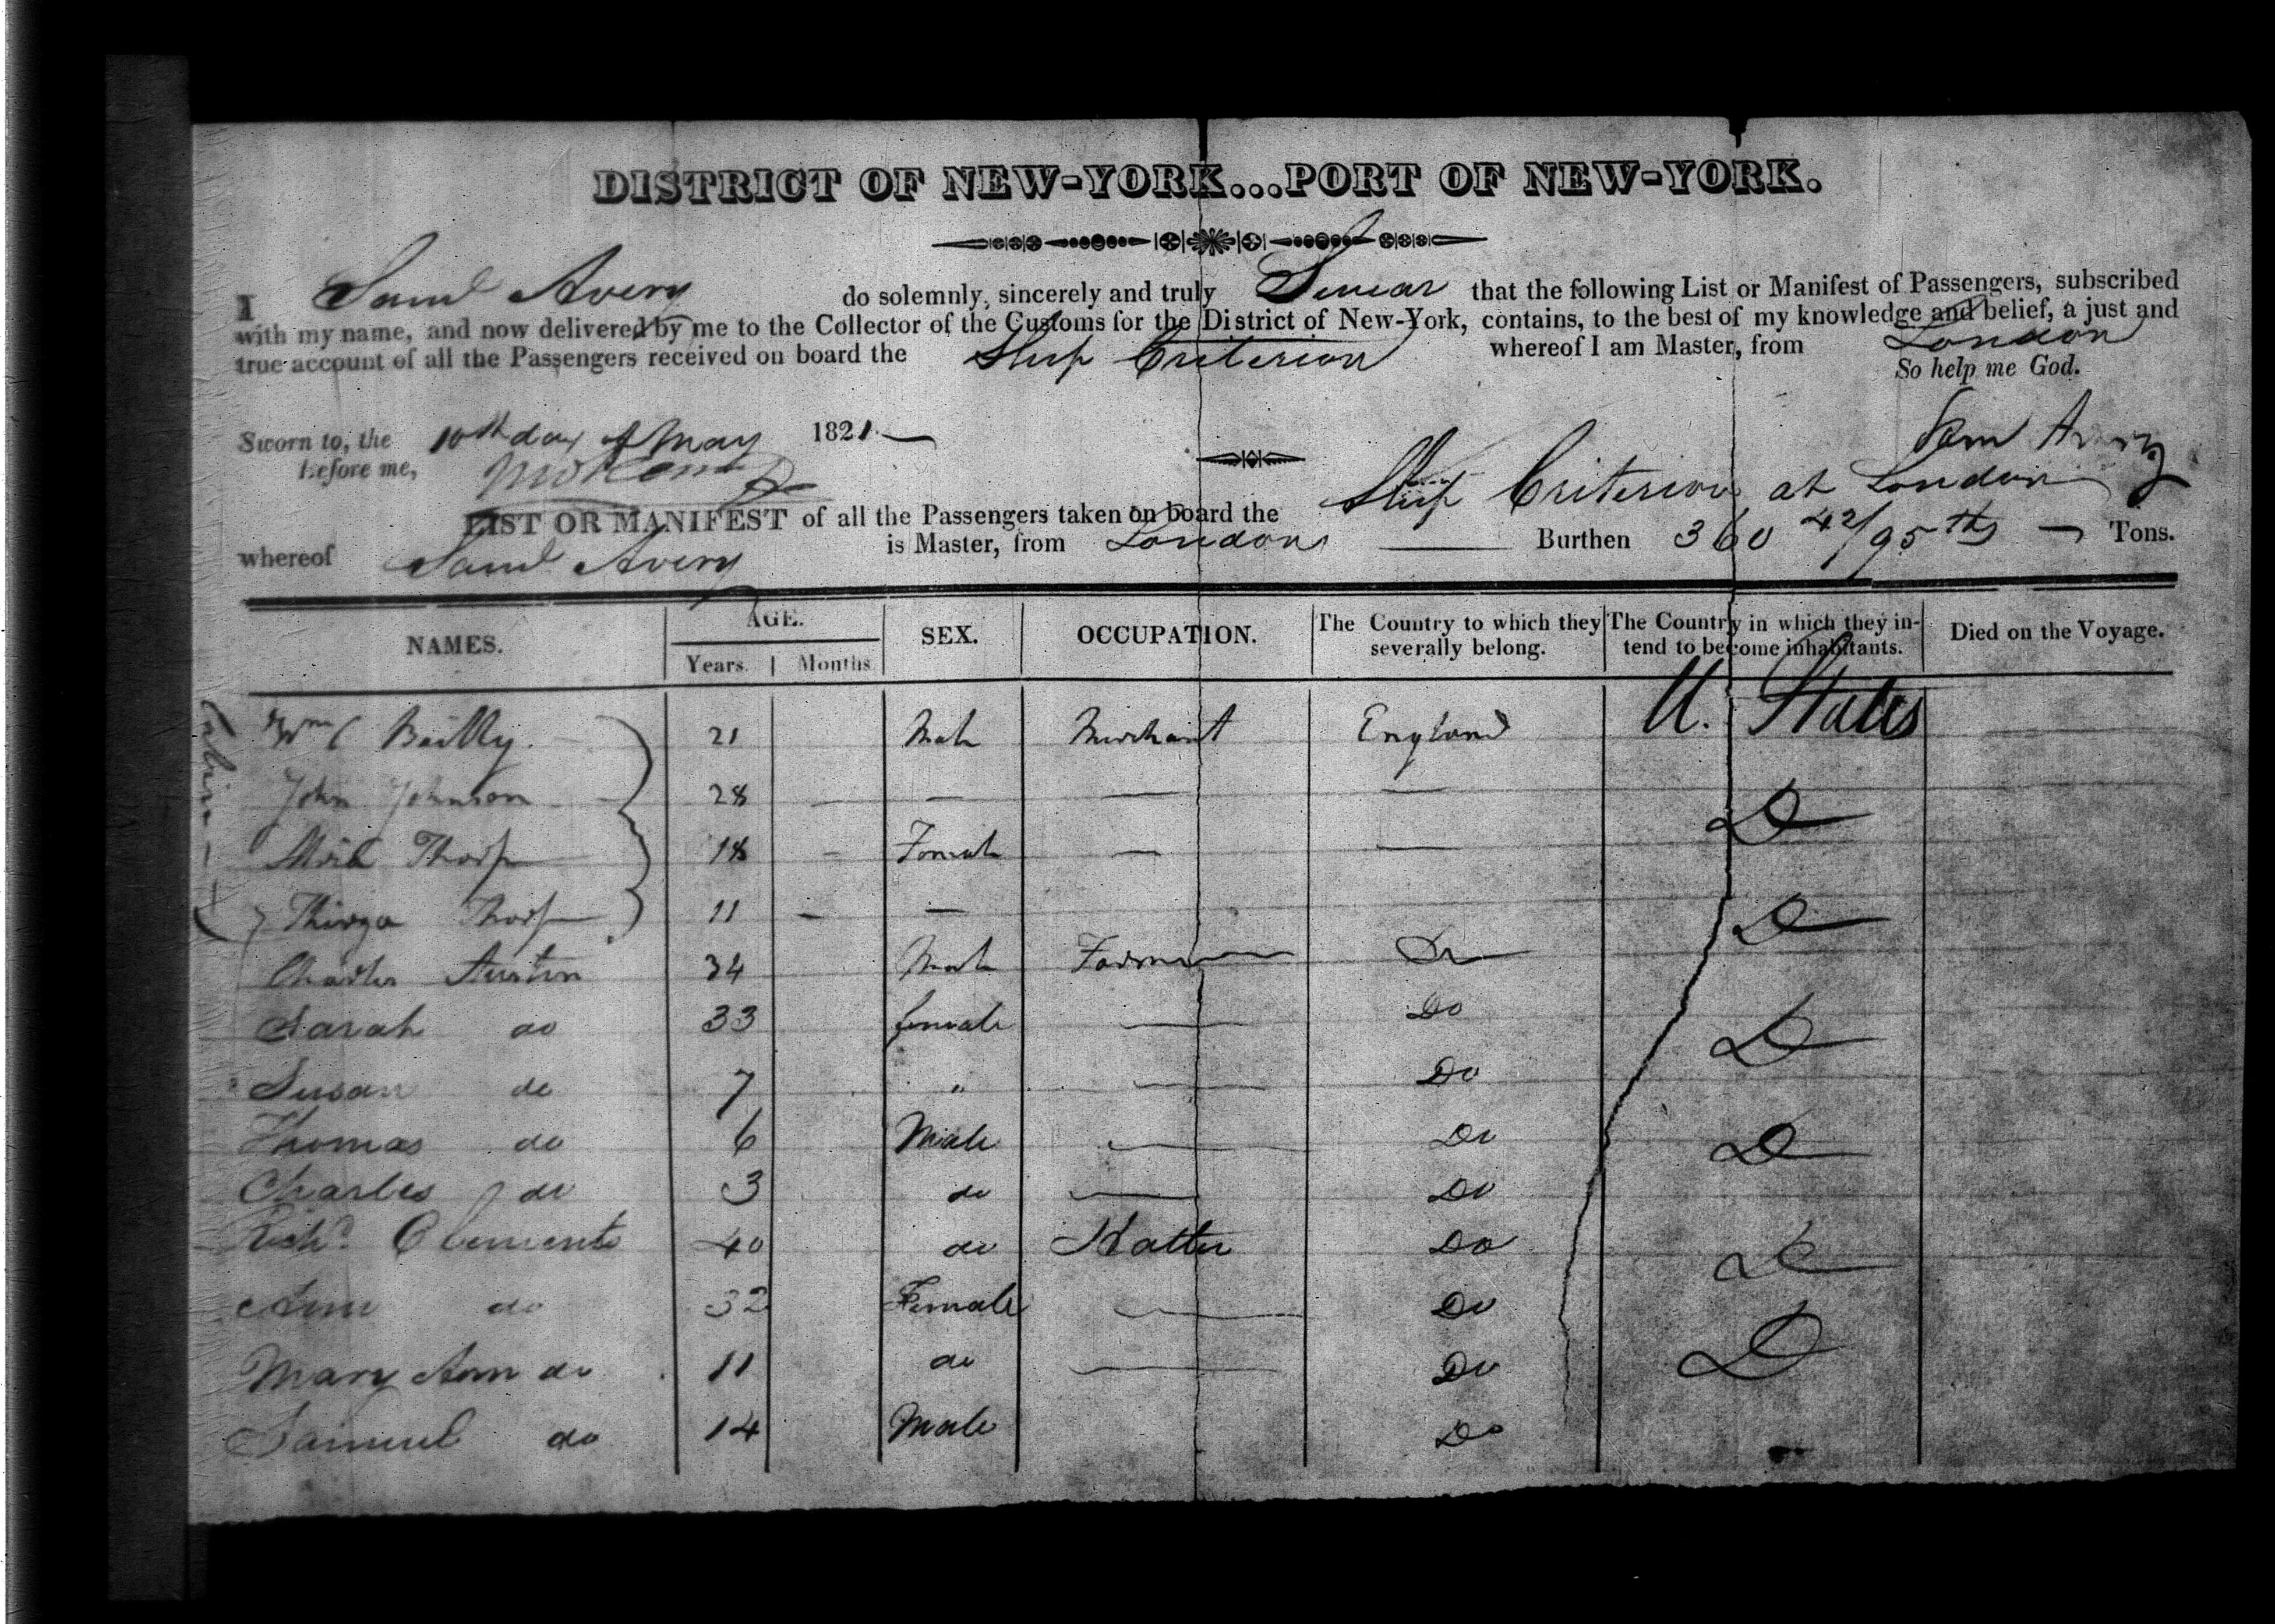 DISTRICT OF NEW-YORK...PORT OF NEW-YORK.
I Saml Avery do solemnly, sincerely and truly Swear that the following List or Manifest of Passengers, subscribed
with my name, and now delivered by me to the Collector of the Customs for the District of New-York, contains, to the best of my knowledge and belief, a just and
true account of all the Passengers received on board the Ship Criterion whereof I am Master, from London
So help me God.
Sworn to, the 10th day of May 1821
before me,
Sam Avery
LIST OR MANIFEST of all the Passengers taken on board the Ship Criterion at London
whereof Saml Avery is Master, from London Burthen 360 42/95ths Tons.
NAMES. AGE. Years. Months SEX. OCCUPATION. The Country to which they severally belong. The Country in which they intend to become inhabitants. Died on the Voyage.
Cabin
Wm Bailly 21 Male Merchant England U. States
John Johnson 28 — — — — Do
Thorp 18 — Female — —
Thirza Thorp 11 — — Do
Charles Austin 34 Male Farmer Do
Sarah do 33 female — Do Do
Susan do 7 " — Do
Thomas do 6 Male — Do Do
Charles do 3 do — Do
Richd. Clements 40 do Hatter Do Do
Ann do 32 Female — Do
Mary Ann do 11 do — Do Do
Samuel do 14 Male Do